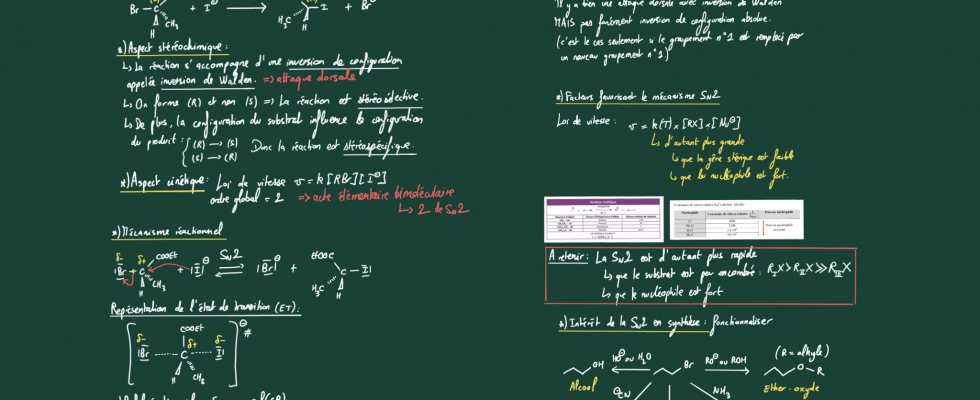 Br — C + I⊖ → C — I + Br
H CH₃ H₃C H
*) Aspect stéréochimique :
↳ La réaction s'accompagne d'une inversion de configuration
appelée inversion de Walden. => attaque dorsale
↳ On forme (R) et non (S) => La réaction est stéréosélective.
↳ De plus, la configuration du substrat influence la configuration
du produit : { (R) → (S)
(S) → (R)
Donc la réaction est stéréospécifique.
*) Aspect cinétique : Loi de vitesse v = k [RBr][I⊖]
ordre global = 2 => acte élémentaire bimoléculaire
↳ 2 de SN2
*) Mécanisme réactionnel
δ- δ+ COOEt
Br — C + I⊖ ⇌ SN2 Br⊖ + EtOOC C — I
H CH₃ H₃C H
Représentation de l'état de transition (ET) :
[ δ- Br ---- C δ+ ---- I δ- ] ⊖ ≠
COOEt
H CH₃
Il y a bien une attaque dorsale avec inversion de Walden
MAIS pas forcément inversion de configuration absolue.
(c'est le cas seulement si le groupement n°1 est remplacé par
un nouveau groupement n°1)
*) Facteurs favorisant le mécanisme SN2
Loi de vitesse : v = k(T) × [RX] × [Nu⊖]
↳ d'autant plus grande
↳ que la gêne stérique est faible
↳ que le nucléophile est fort.
A retenir : La SN2 est d'autant plus rapide
↳ que le substrat est peu encombré : R_I X > R_II X >> R_III X
↳ que le nucléophile est fort
*) Intérêt de la SN2 en synthèse : fonctionnaliser
OH HO⊖ ou H₂O Br RO⊖ ou ROH (R = alkyle)
O—R
Alcool ⊖CN NH₃ Ether-oxyde